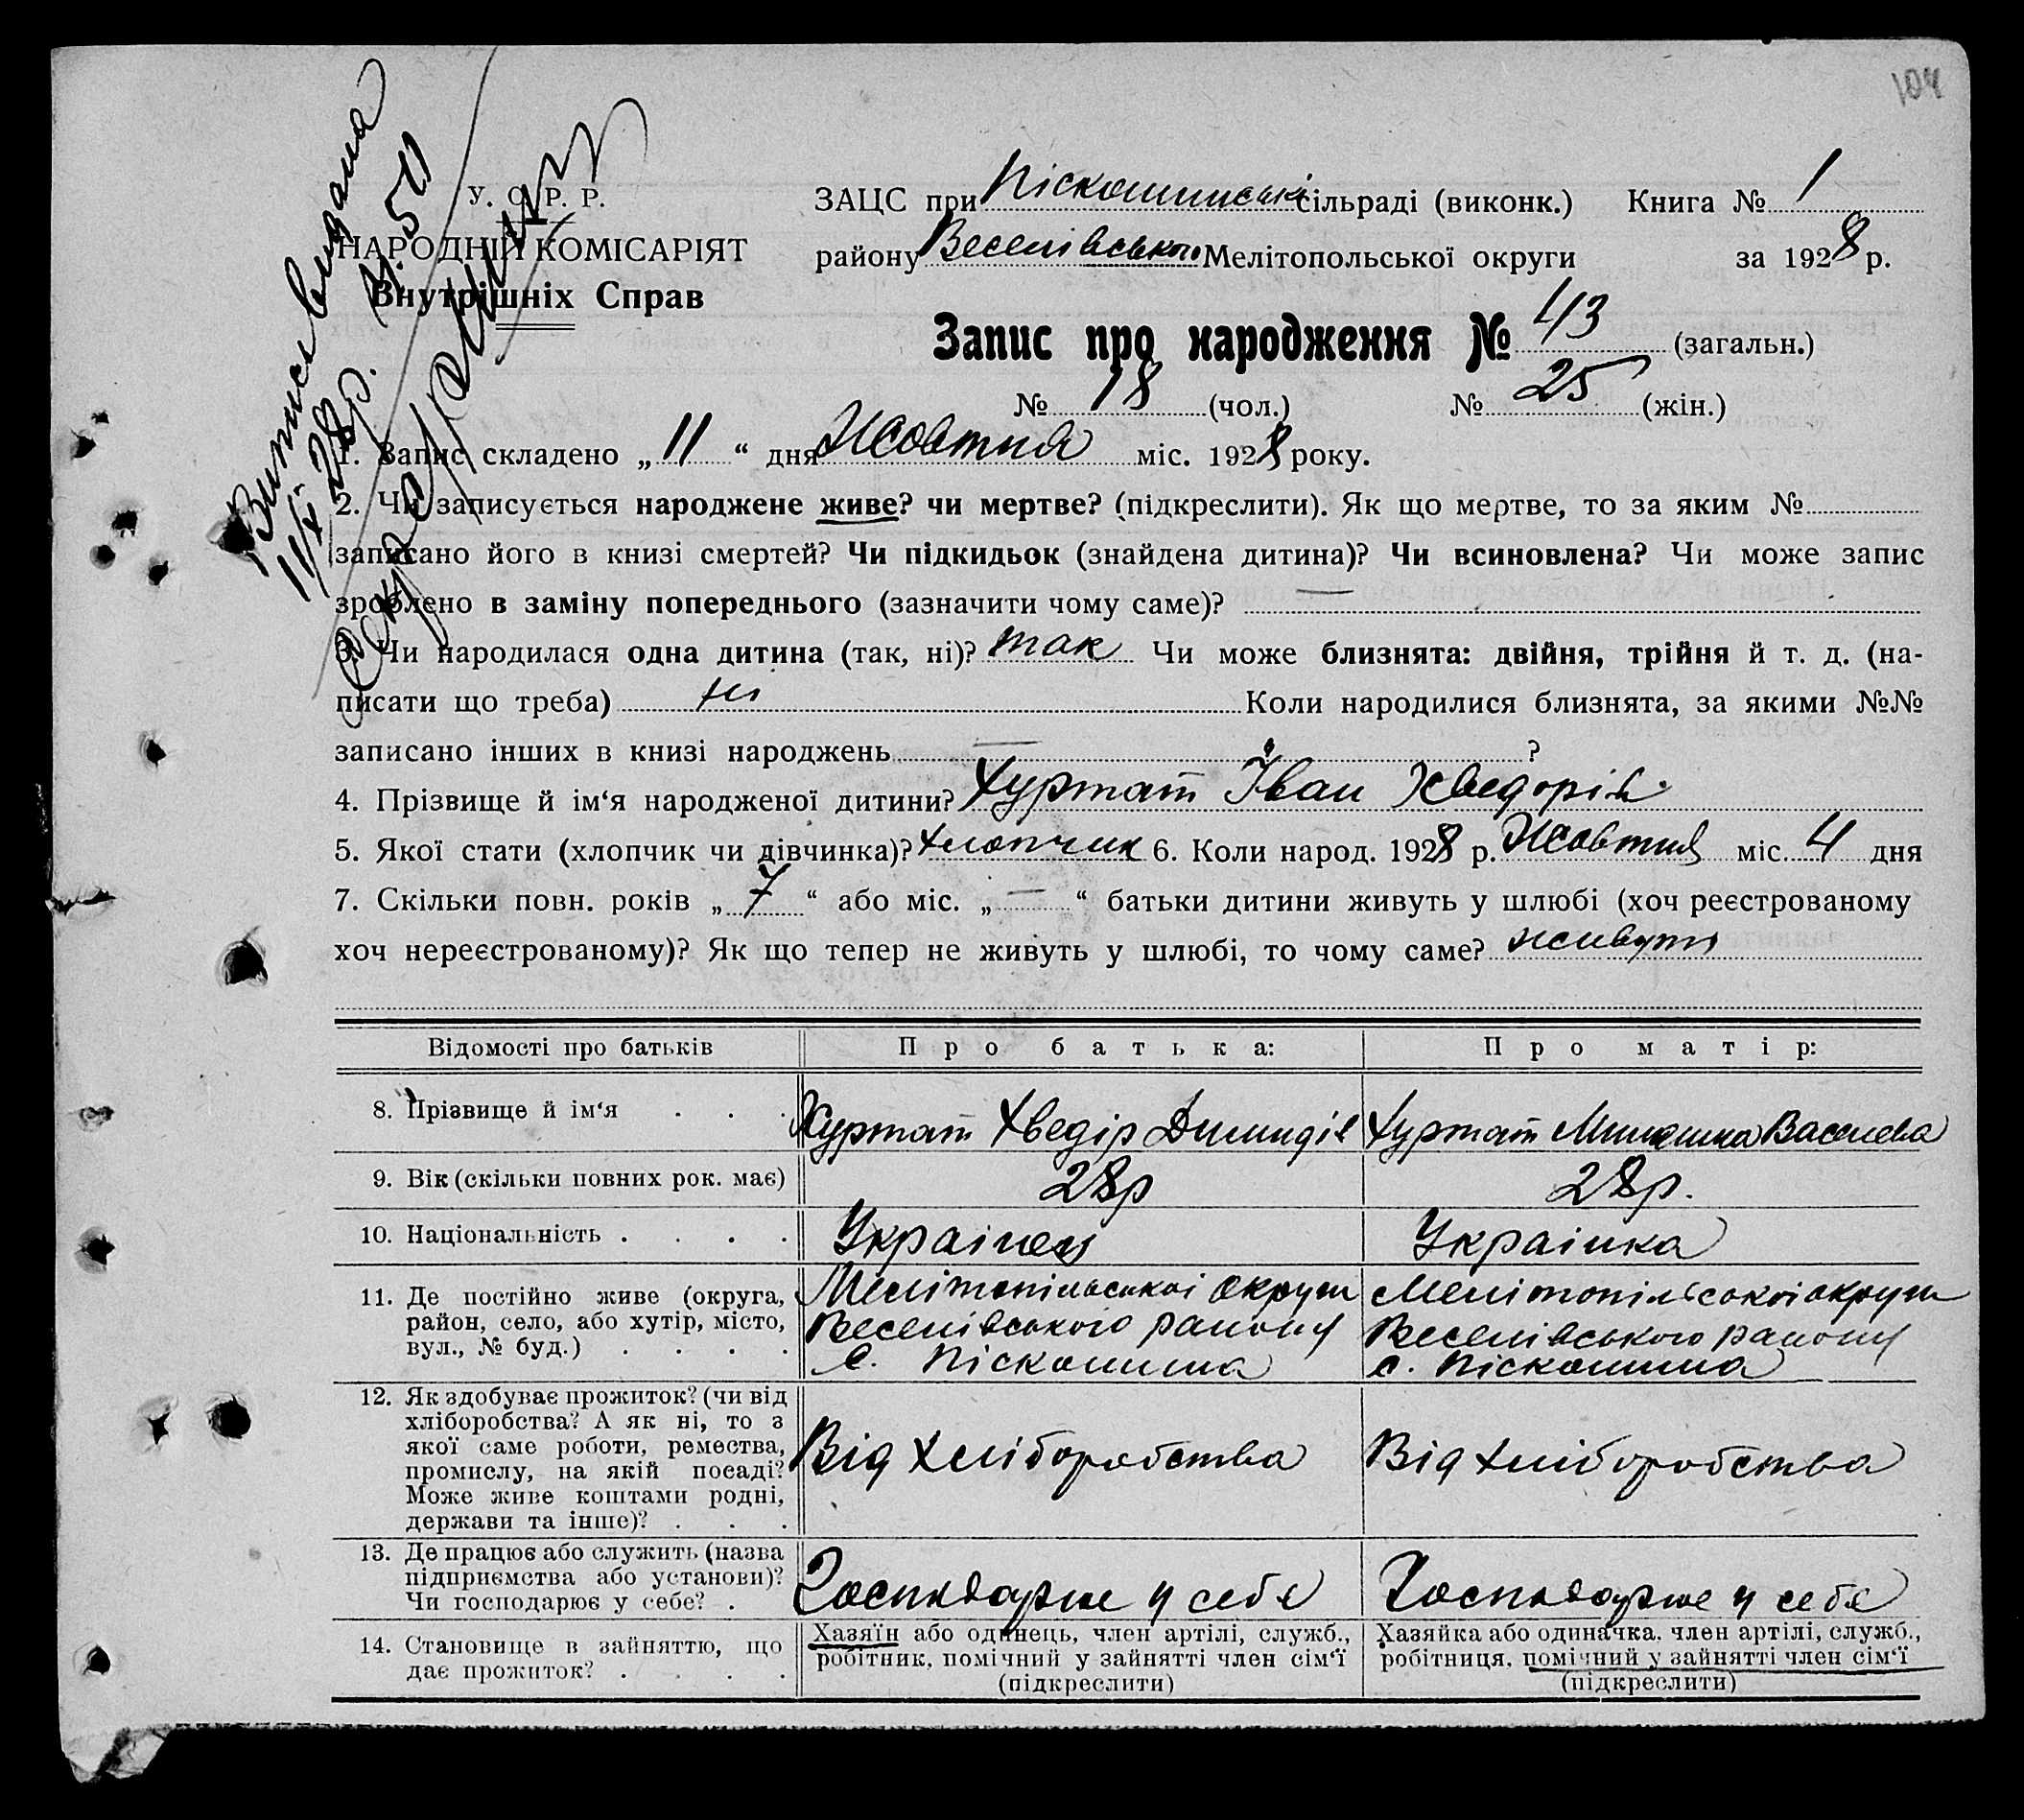 104
Випись видана
11/X 28р. N 501
У. С. Р. Р.
НАРОДНІЙ КОМІСАРІЯТ
Внутрішніх Справ
ЗАЦС при Піскошинські сільраді (виконк.) Книга № 1
району Веселівського Мелітопольської округи за 1928 р.
Запис про народження № 43 (загальн.)
№ 18 (чол.) № 25 (жін.)
1. Запис складено „ 11 “ дня Жовтня міс. 1928 року.
2. Чи записується народжене живе? чи мертве? (підкреслити). Як що мертве, то за яким №
записано його в книзі смертей? Чи підкидьок (знайдена дитина)? Чи всиновлена? Чи може запис
зроблено в заміну попереднього (зазначити чому саме)? —
3. Чи народилася одна дитина (так, ні)? так Чи може близнята: двійня, трійня й т. д. (на-
писати що треба) ні Коли народилися близнята, за якими №№
записано інших в книзі народжень — ?
4. Прізвище й ім‘я народженої дитини? Хуртат Іван Хведорів
5. Якої стати (хлопчик чи дівчинка)? хлопчик 6. Коли народ. 1928 р. Жовтня міс. 4 дня
7. Скільки повн. років „ 7 “ або міс. „ — “ батьки дитини живуть у шлюбі (хоч реєстрованому
хоч нереєстрованому)? Як що тепер не живуть у шлюбі, то чому саме? живуть
Відомості про батьків Про батька: Про матір:
8. Прізвище й ім‘я . . . Хуртат Хведір Хуртат Василева
9. Вік (скільки повних рок. має) 28р 28р.
10. Національність . . . . Українец Українка
11. Де постійно живе (округа,
район, село, або хутір, місто,
вул., № буд.) . . . .
Мелітопільської округи
Веселівського району
с. Піскошина
Мелітопільської округи
Веселівського району
с. Піскошина
12. Як здобуває прожиток? (чи від
хліборобства? А як ні, то з
якої саме роботи, ремества,
промислу, на якій посаді?
Може живе коштами родні,
держави та інше)? . . .
Від хліборобства
Від хліборобства
13. Де працює або служить (назва
підприємства або установи)?
Чи господарює у себе? .
Господарює у себе
Господарює у себе
14. Становище в зайняттю, що
дає прожиток? . . . .
Хазяїн або одинець, член артілі, служб.,
робітник, помічний у зайнятті член сім‘ї
(підкреслити)
Хазяйка або одиначка, член артілі, служб.,
робітниця, помічний у зайнятті член сім‘ї
(підкреслити)